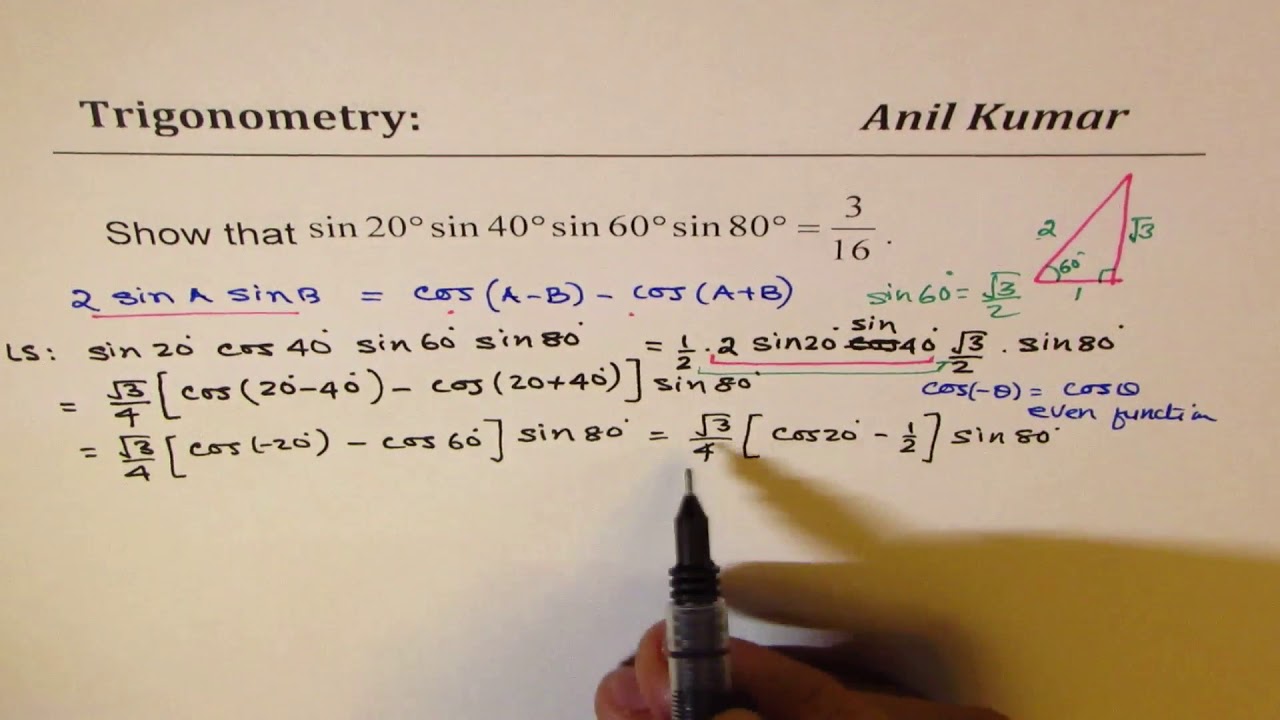 Trigonometry: Anil Kumar
Show that sin 20° sin 40° sin 60° sin 80° = 3/16 .
2 √3 60° 1
2 sinA sinB = cos(A-B) - cos(A+B) sin60° = √3/2
LS: sin 20° cos 40° sin 60° sin 80° = 1/2 . 2 sin20° sin ~~cos~~ 40° √3/2 . sin 80°
= √3/4 [cos(20°-40°) - cos(20+40°)] sin 80° cos(-θ) = cosθ
even function
= √3/4 [cos(-20°) - cos 60°] sin 80° = √3/4 [cos20° - 1/2] sin 80°